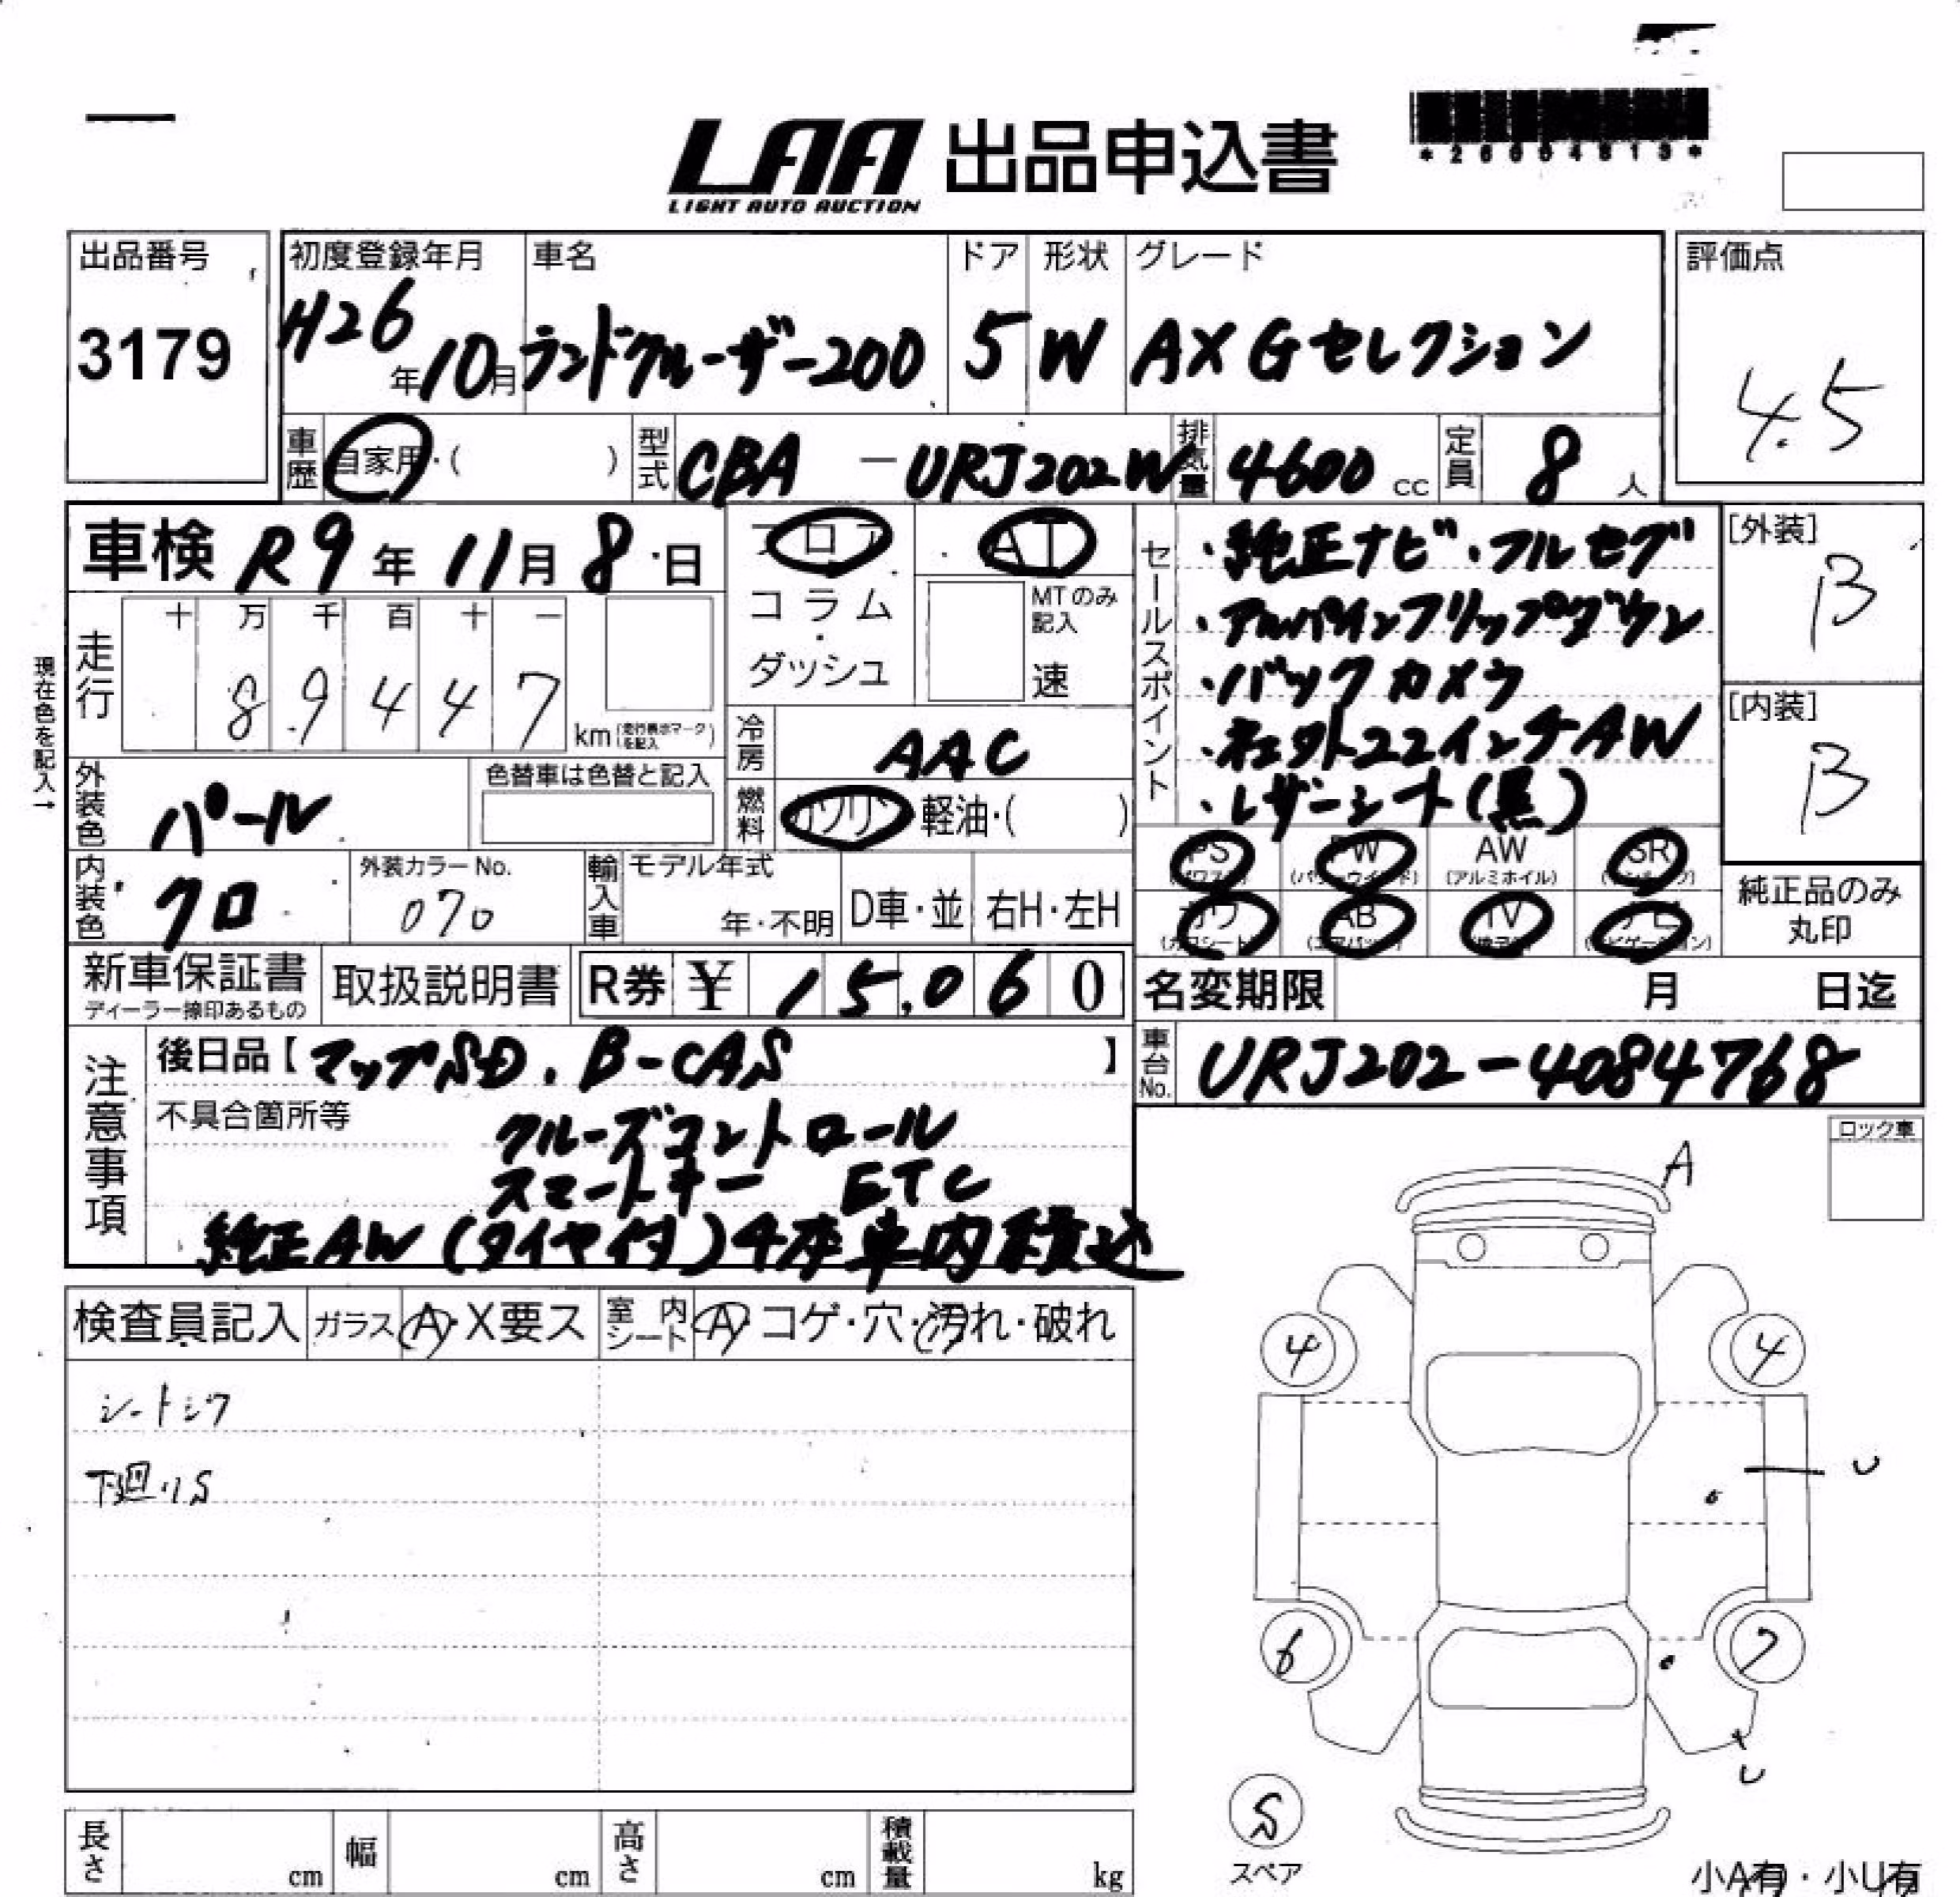 LAA 出品申込書
LIGHT AUTO AUCTION
*26004813*
出品番号
3179
初度登録年月
H26年10月
車名
ランドクルーザー200
ドア
5
形状
W
グレード
AX Gセレクション
評価点
4.5
車歴 自家用・( )
型式 CBA - URJ202W
排気量 4600 cc
定員 8人
車検 R9年11月8日
フロア・コラム・ダッシュ
AT
MTのみ記入
速
セールスポイント
・純正ナビ・フルセグ
・アルパインフリップダウン
・バックカメラ
22インチAW
・レザーシート(黒)
[外装]
B
[内装]
B
現在色を記入→
走行
十 万 千 百 十 一
8 9 4 4 7 km
冷房 AAC
燃料 ガソリン 軽油・( )
外装色 パール
色替車は色替と記入
内装色 クロ
外装カラーNo.
070
輸入車
モデル年式
年・不明
D車・並
右H・左H
PS
(パワステ)
PW
(パワーウインド)
AW
(アルミホイル)
SR
(サンルーフ)
カワ
(カワシート)
AB
(エアバック)
TV
ナビ
(ナビゲーション)
純正品のみ
丸印
新車保証書
ディーラー捺印あるもの
取扱説明書
R券 ¥ 15,060
名変期限 月 日迄
注意事項
後日品【マップSD、B-CAS】
不具合箇所等
クルーズコントロール
スマートキー ETC
純正AW(タイヤ付)4本車内積込
車台No. URJ202-4084768
ロック車
A
検査員記入
ガラス A・X要ス
室内シート A コゲ・穴・汚れ・破れ
シートシワ
下廻りS
4
4
U
6
7
U
S
スペア
長さ cm
幅 cm
高さ cm
積載量 kg
小A有・小U有